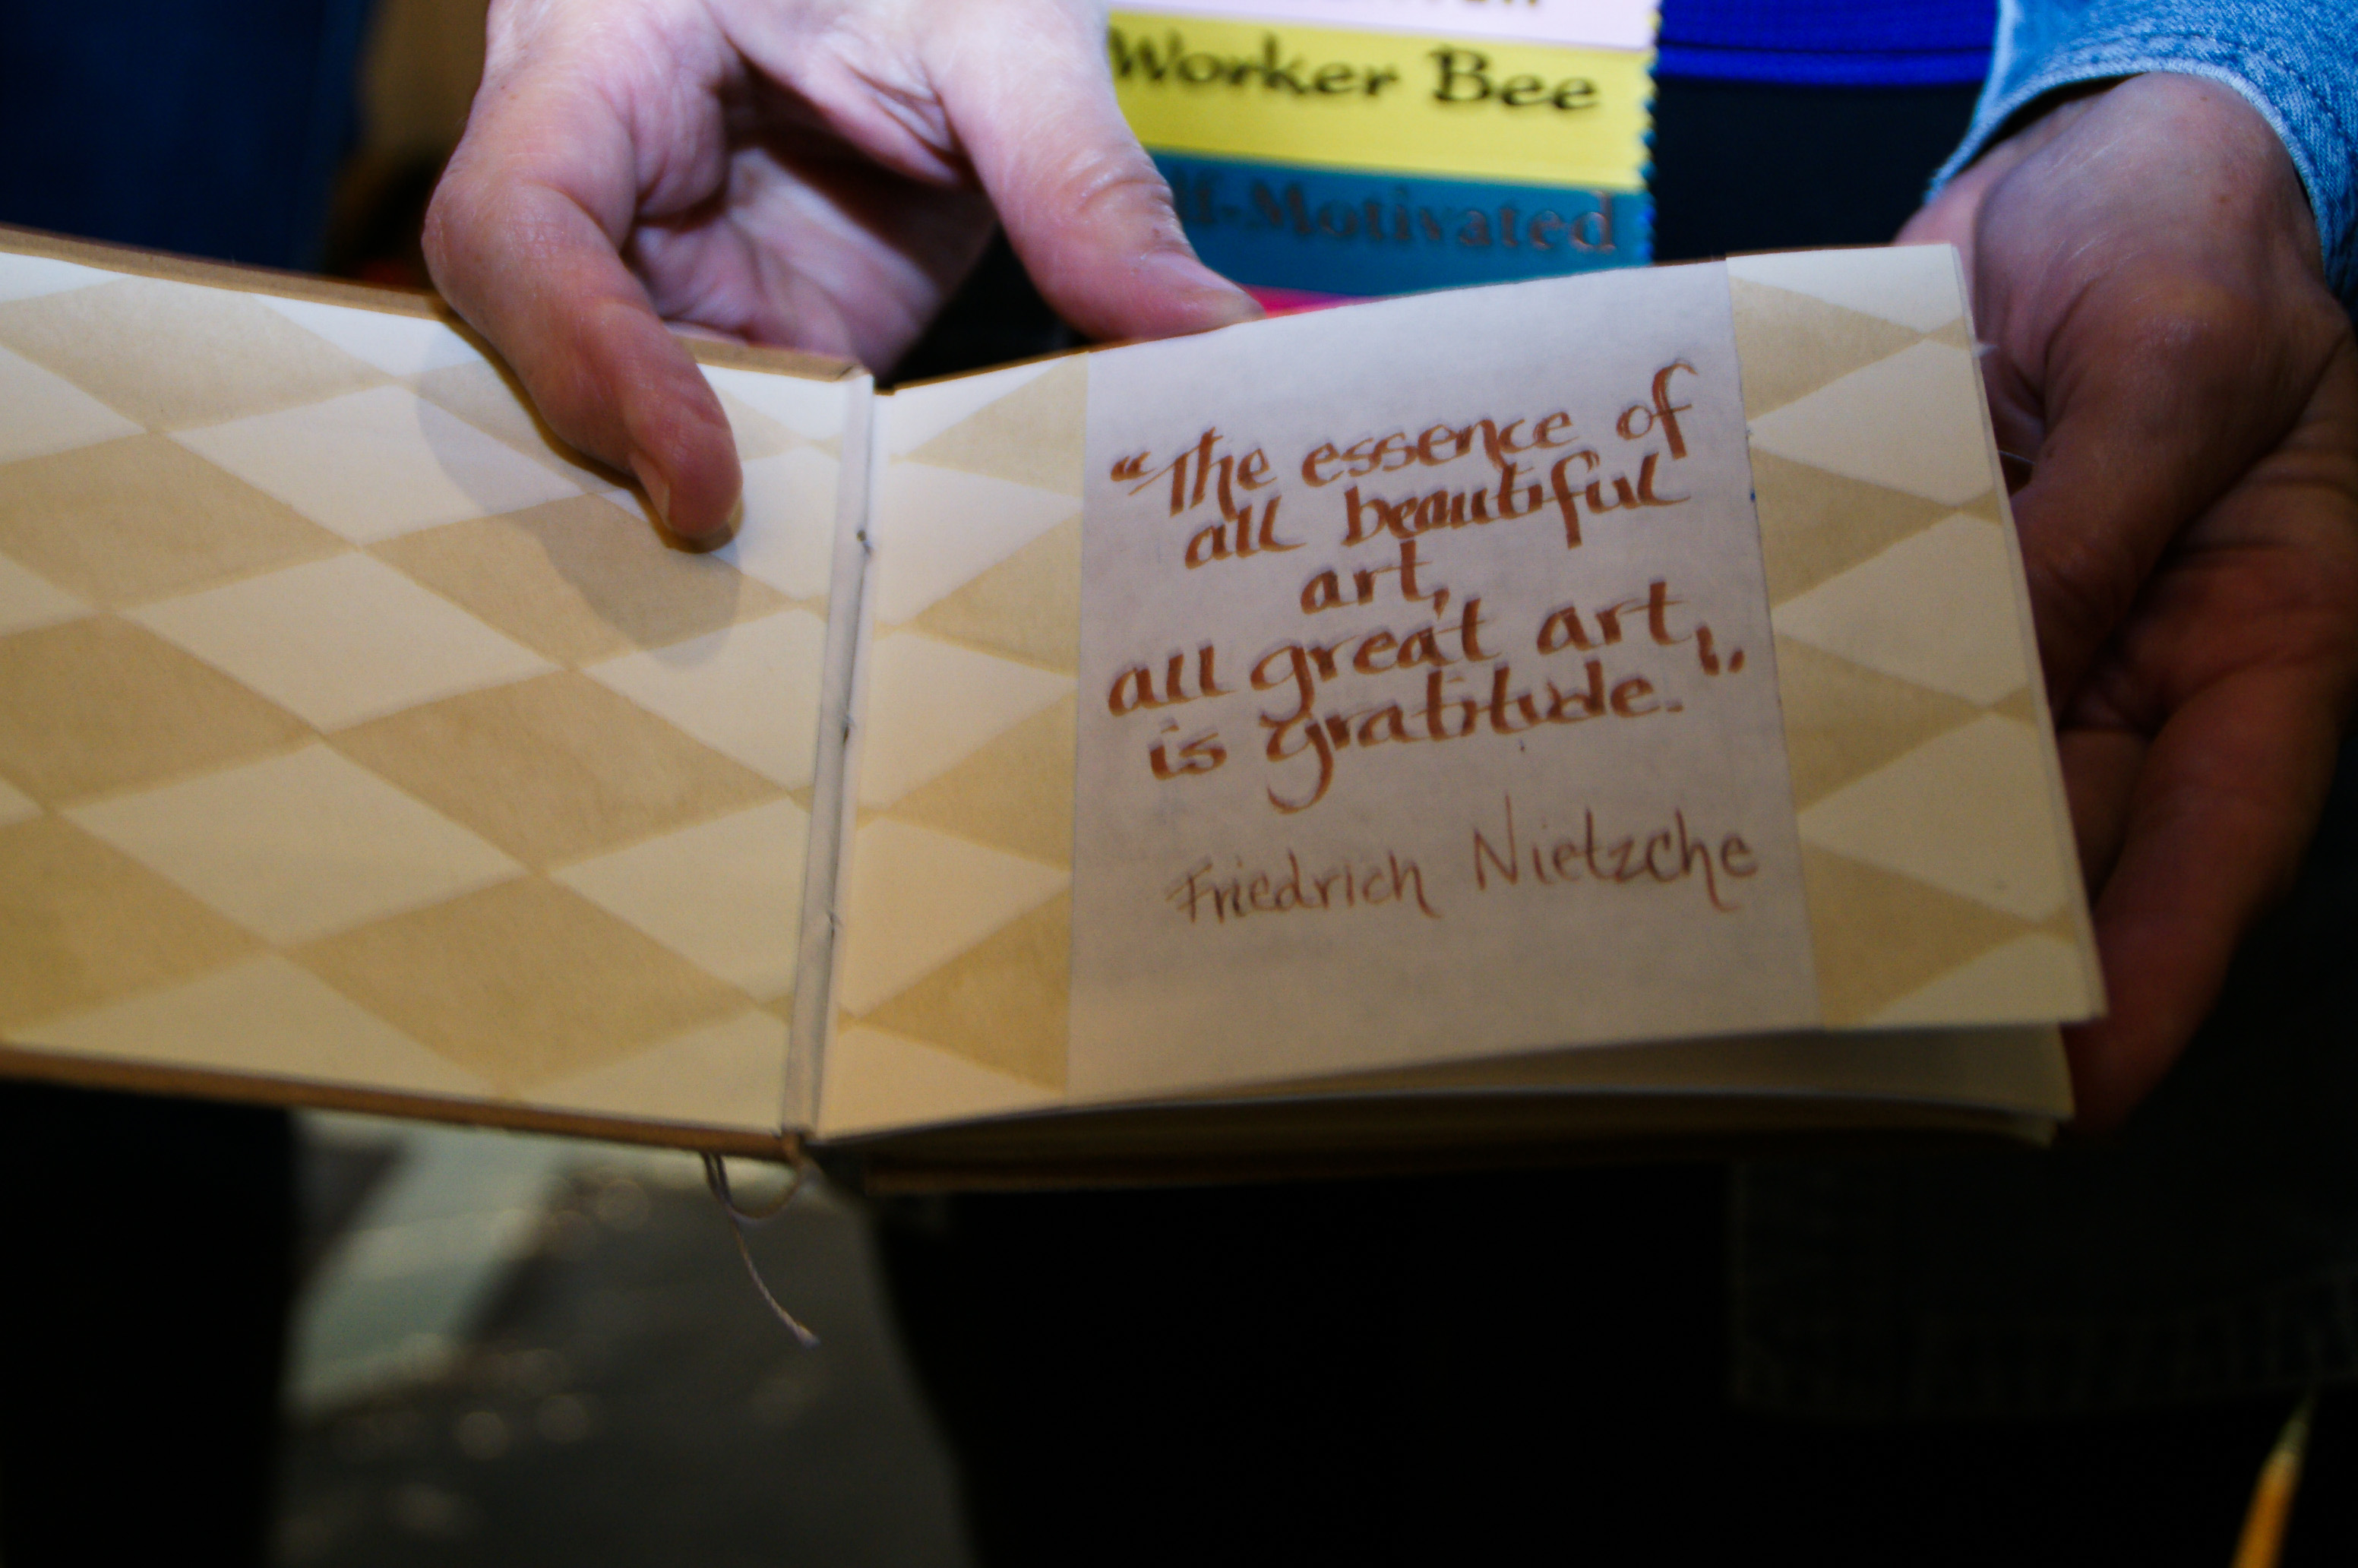 Worker Bee
lf-Motivated
"The essence of
all beautiful
art,
all great art,
is gratitude."
Friedrich Nietzche